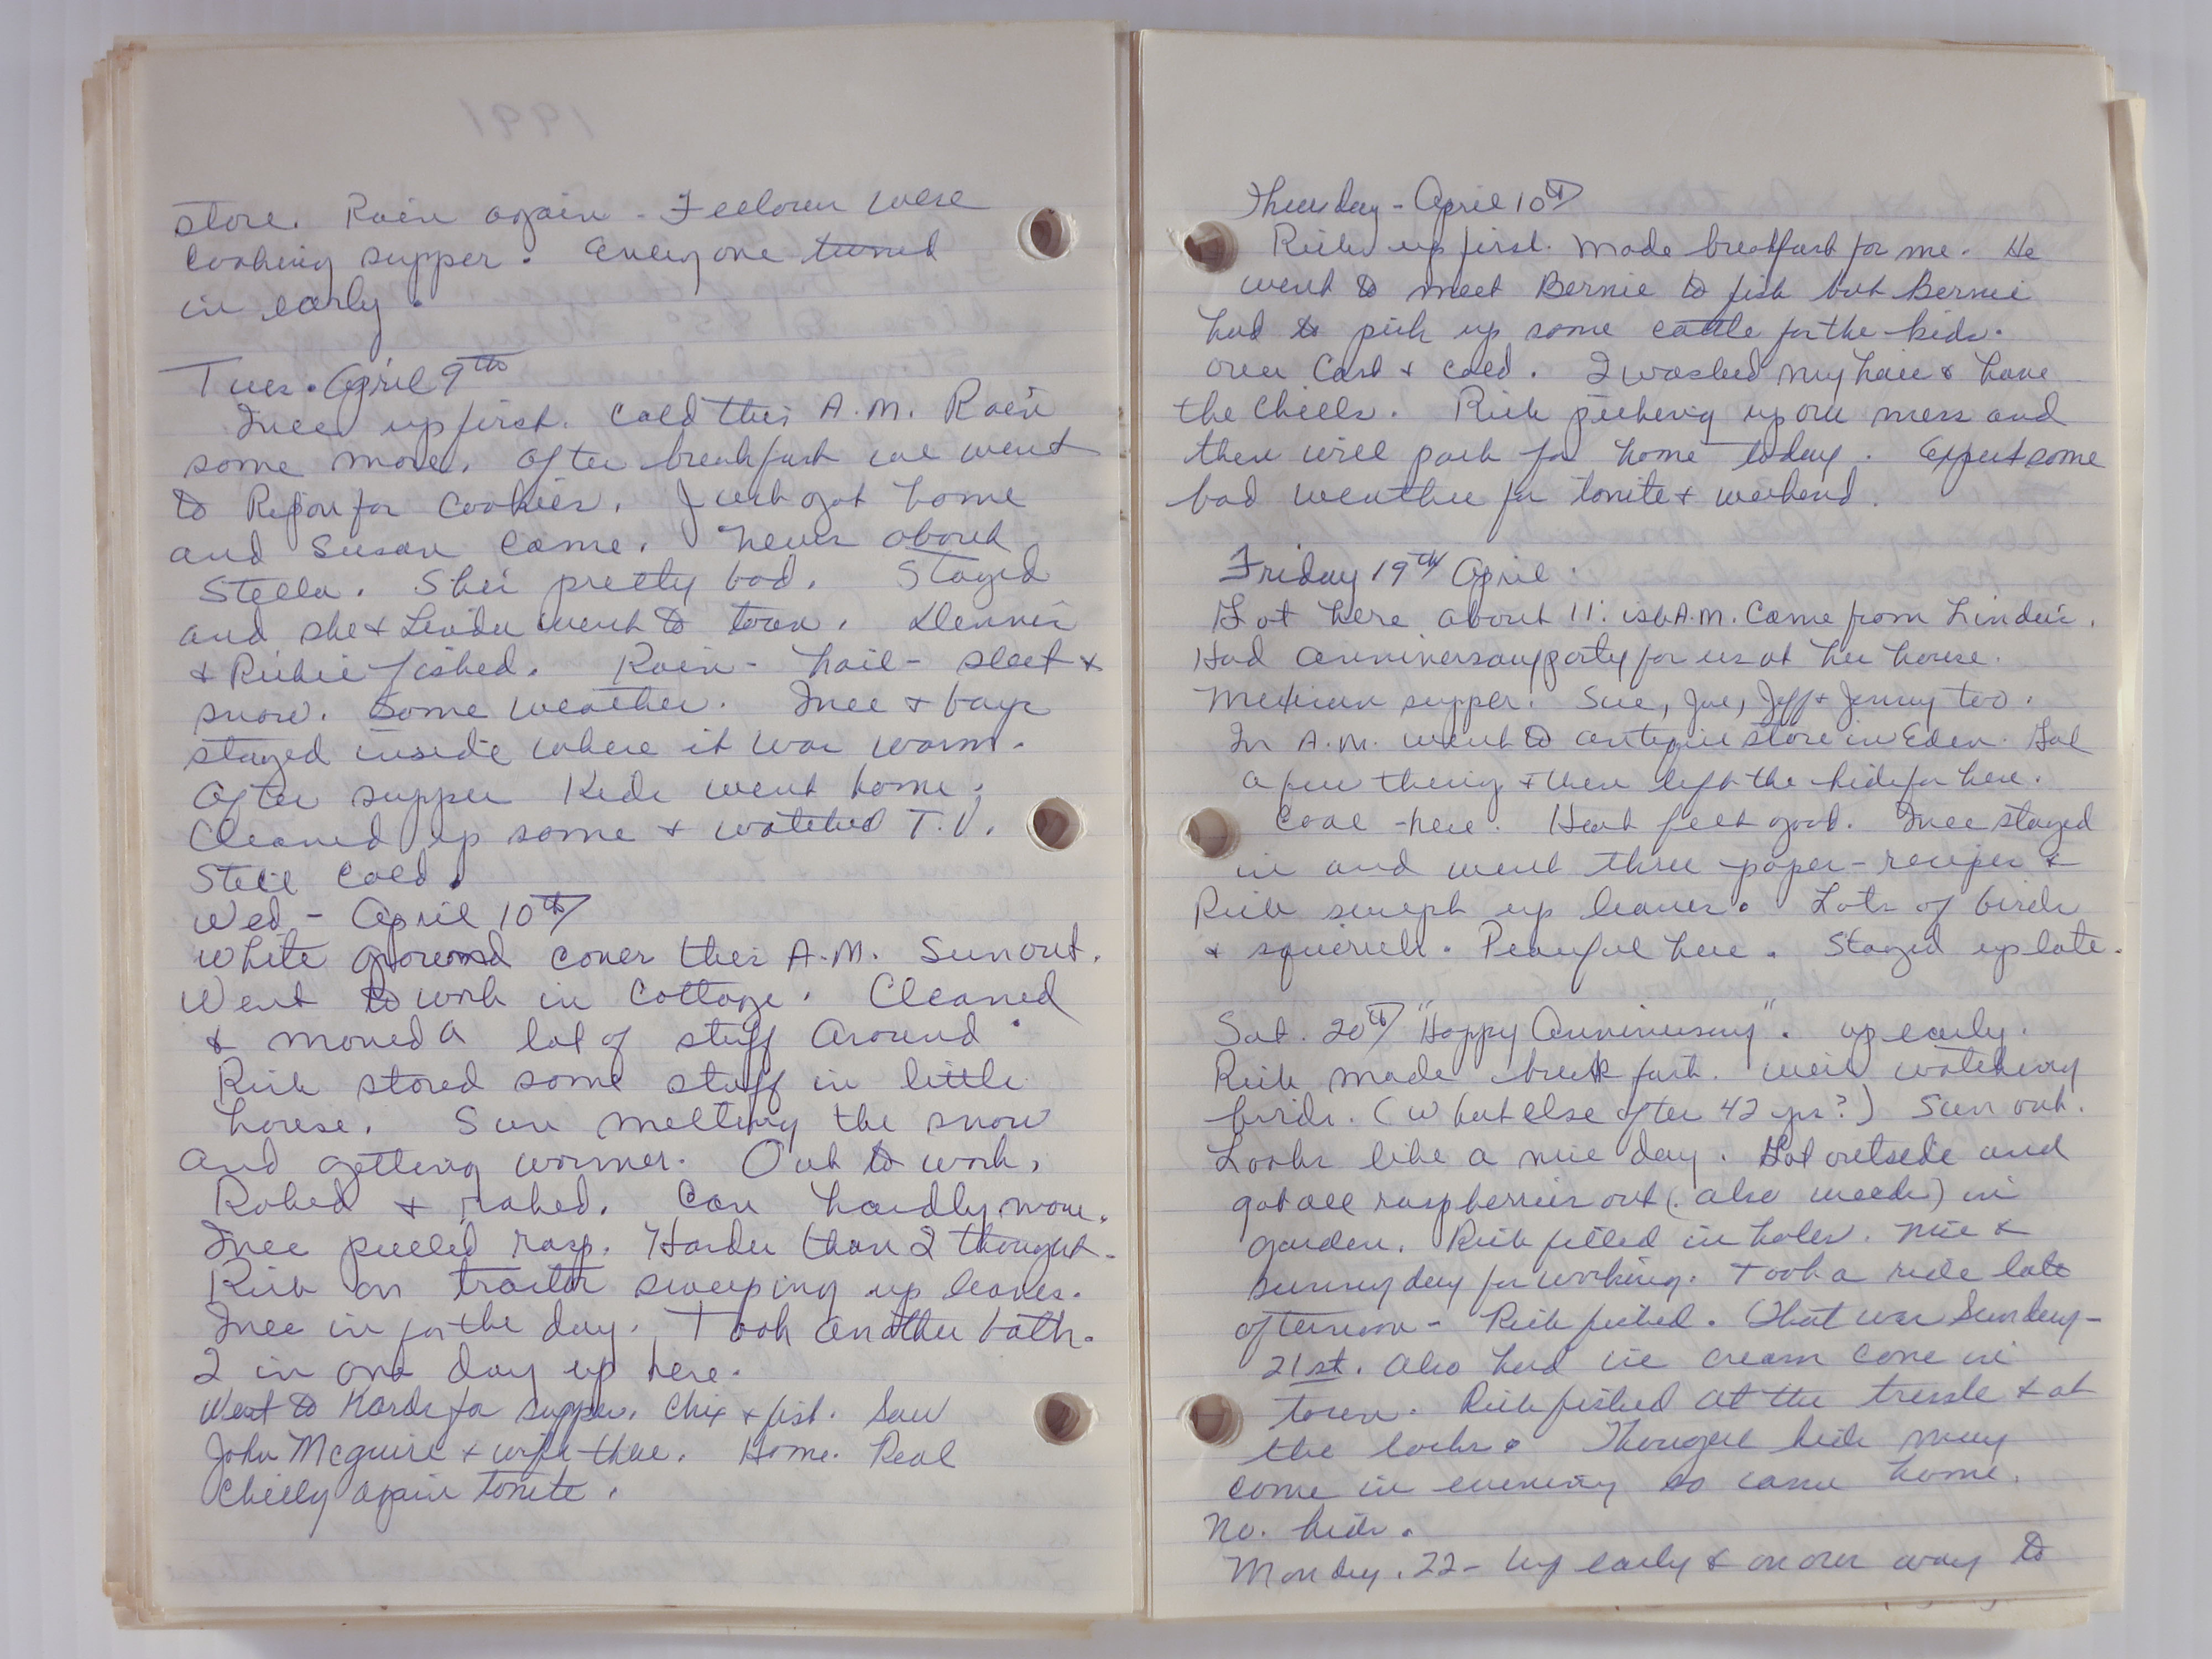 1991
store. Rain again - Feelows were
cooking supper. Everyone turned
in early.
Tues. April 9th
Inee up first. Cold this A.M. Rain
some more. After breakfast we went
to Ripon for cookies. Just got home
and Susan came. News about
Stella. She's pretty bad. Stayed
and she & Linda went to town. Dennis
& Richie fished. Rain - hail - sleet &
snow. Some weather. Inee & boys
stayed inside where it was warm.
After supper Kids went home.
Cleaned up some & watched T.V.
Still cold.
Wed - April 10th
White ground cover this A.M. Sun out.
Went to work in Cottage. Cleaned
& moved a lot of stuff around.
Rich stored some stuff in little
house. Sun melting the snow
and getting warmer. Out to work.
Raked & raked. Can hardly move.
Inee pulled rasp. Harder than I thought.
Rich on tractor sweeping up leaves.
Inee in for the day. Took another bath.
2 in one day up here.
Went to Hards for supper. Chix & fish. Saw
John Mcguire & wife there. Home. Real
chilly again tonite.
Thursday - April 10th
Rich up first. Made breakfast for me. He
went to meet Bernie to fish but Bernie
had to pick up some cattle for the kids.
over Cast & cold. I washed my hair & have
the chills. Rich picking up our mess and
then will pack for home today. Expect some
bad weather for tonite & weekend.
Friday 19th April.
Got here about 11:ish A.M. Came from Linda's.
Had anniversary party for us at her house.
Mexican supper. Sue, Joe, Jeff & Jenny too.
In A.M. went to antique store in Eden. Got
a few things & then left the kids for here.
Cool here. Heat felt good. Inee stayed
in and went thru paper - recipes &
Rich swept up leaves. Lots of birds
& squirrels. Peaceful here. Stayed up late.
Sat. 20th "Happy Anniversary". up early.
Rich made breakfast. We're watching
birds. (What else after 42 yrs?) Sun out.
Looks like a nice day. Got outside and
got all raspberries out (also weeds) in
garden. Rich filled in holes. Nice &
sunny day for working. Took a ride late
afternoon - Rich fished. That was Sunday -
21st. Also had ice cream cone in
town. Rich fished at the tressle & at
the locks. Thought kids may
come in evening so came home.
No. kids.
Monday. 22 - Up early & on our way to